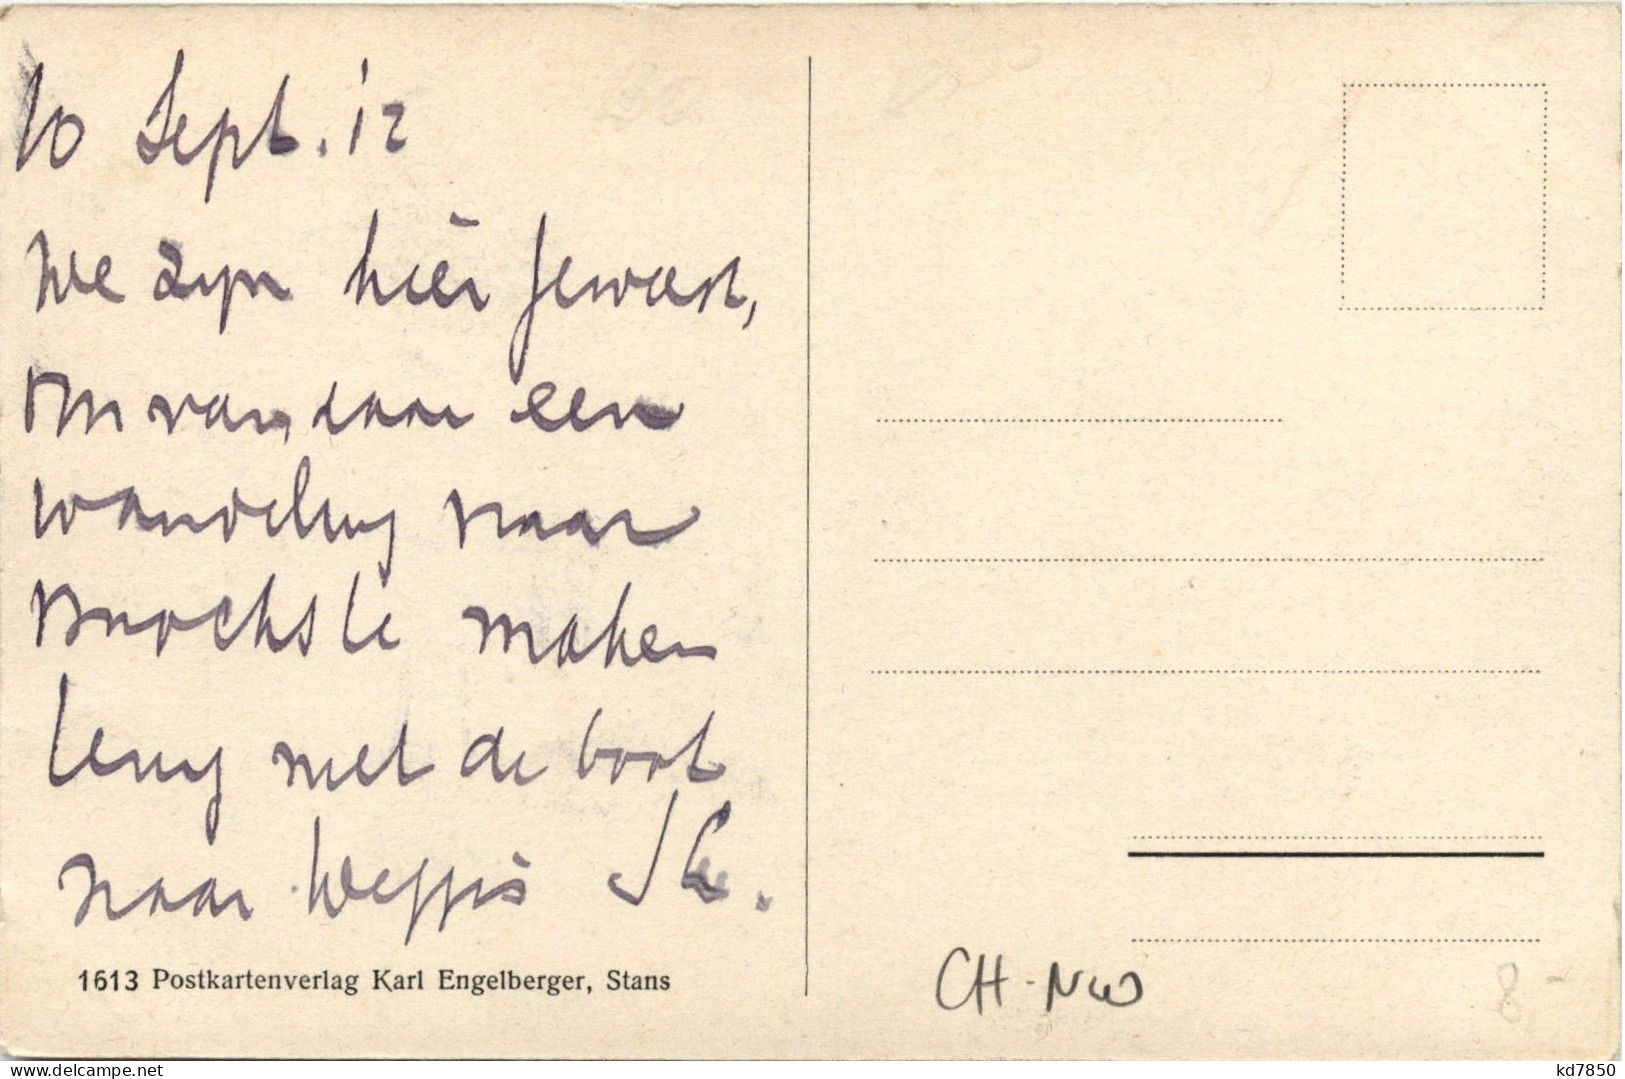 10 Sept. 12
We zyn hier geweest,
om van daar een
wandeling naar
te maken
terug met de boot
naar Weggis
1613 Postkartenverlag Karl Engelberger, Stans
CH-NW
8.-
kd7850